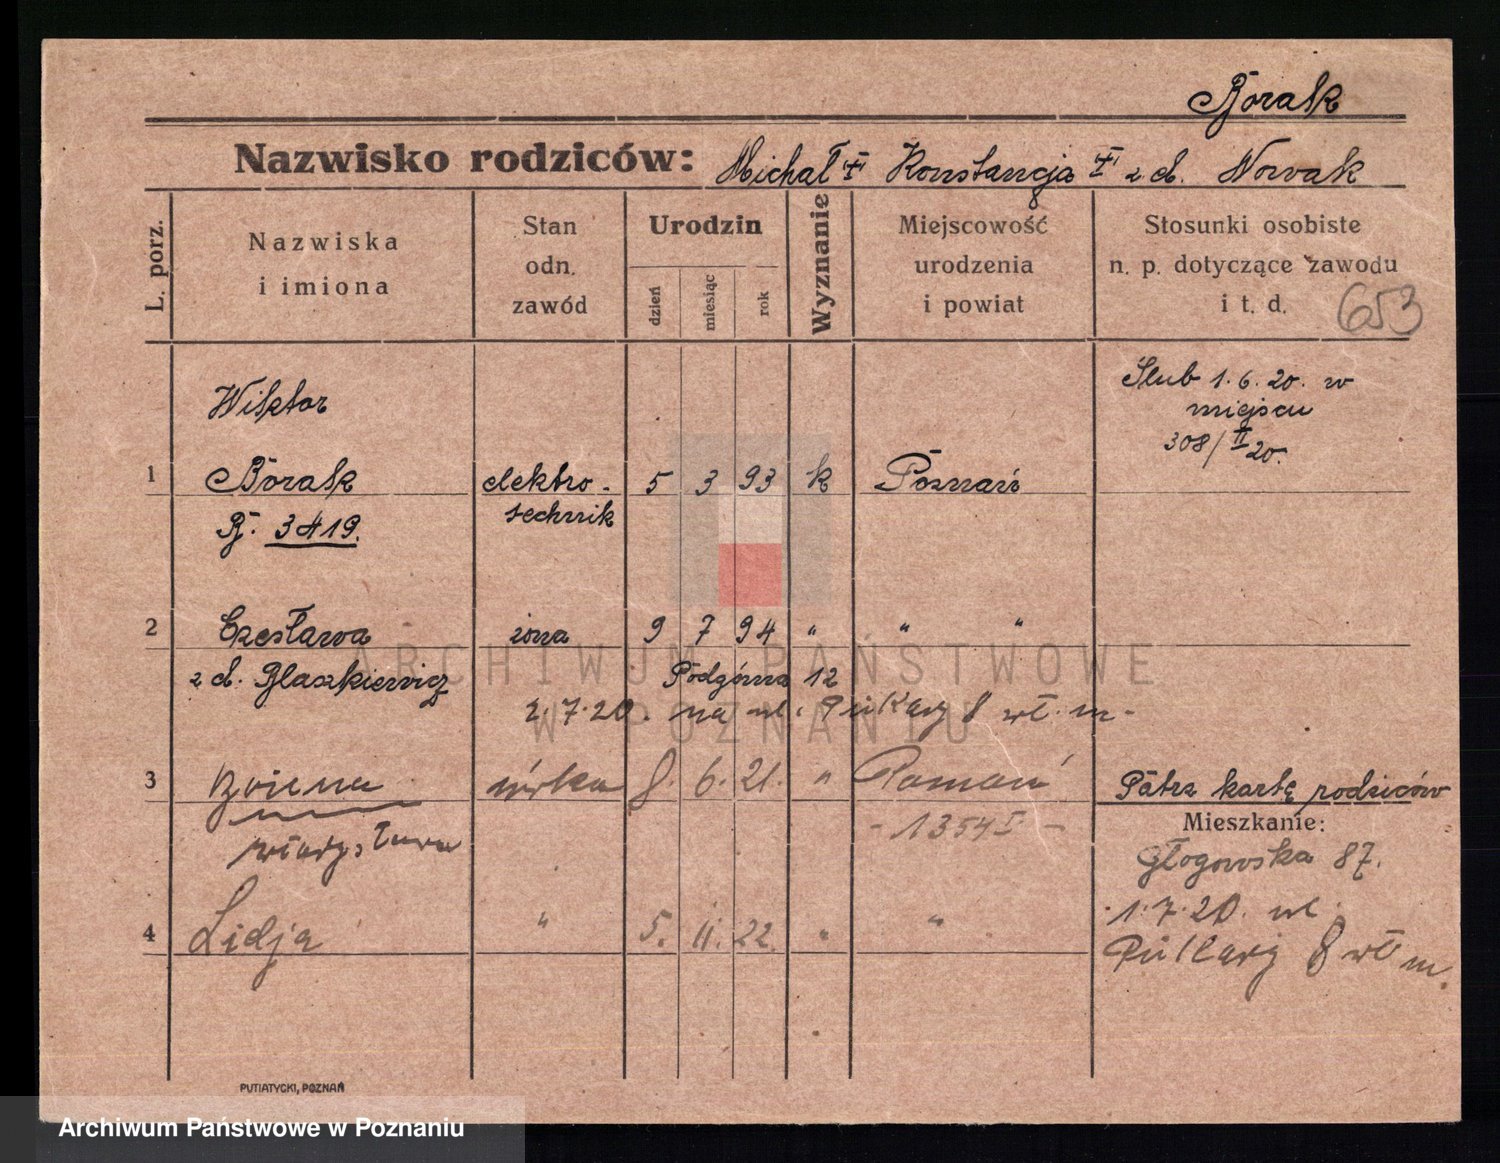 Borak
Nazwisko rodziców: Michał † Konstancja † z d. Nowak
L. porz.
Nazwiska i imiona
Stan odn. zawód
Urodzin
dzień
miesiąc
rok
Wyznanie
Miejscowość urodzenia i powiat
Stosunki osobiste n. p. dotyczące zawodu i t. d.
653
Ślub 1.6.20. w
miejscu
308/II 20.
Wiktor
1 Borak elektro- 5 3 93 k Poznań
technik
B. 3419.
2 Czesława żona 9 7 94 " " "
z d. Błaszkiewicz
Podgórna 12
2.7.20. na ul. Piekary 8 wł. m.
3 Bożena córka 8. 6. 21. " Poznań
Władysława
- 1354 I -
Patrz kartę rodziców
Mieszkanie:
Głogowska 87.
1.7.20. ul.
Piekary 8 wł m.
4 Lidja " 5. 11. 22. " "
PUTIATYCKI, POZNAŃ
ARCHIWUM PAŃSTWOWE
W POZNANIU
Archiwum Państwowe w Poznaniu